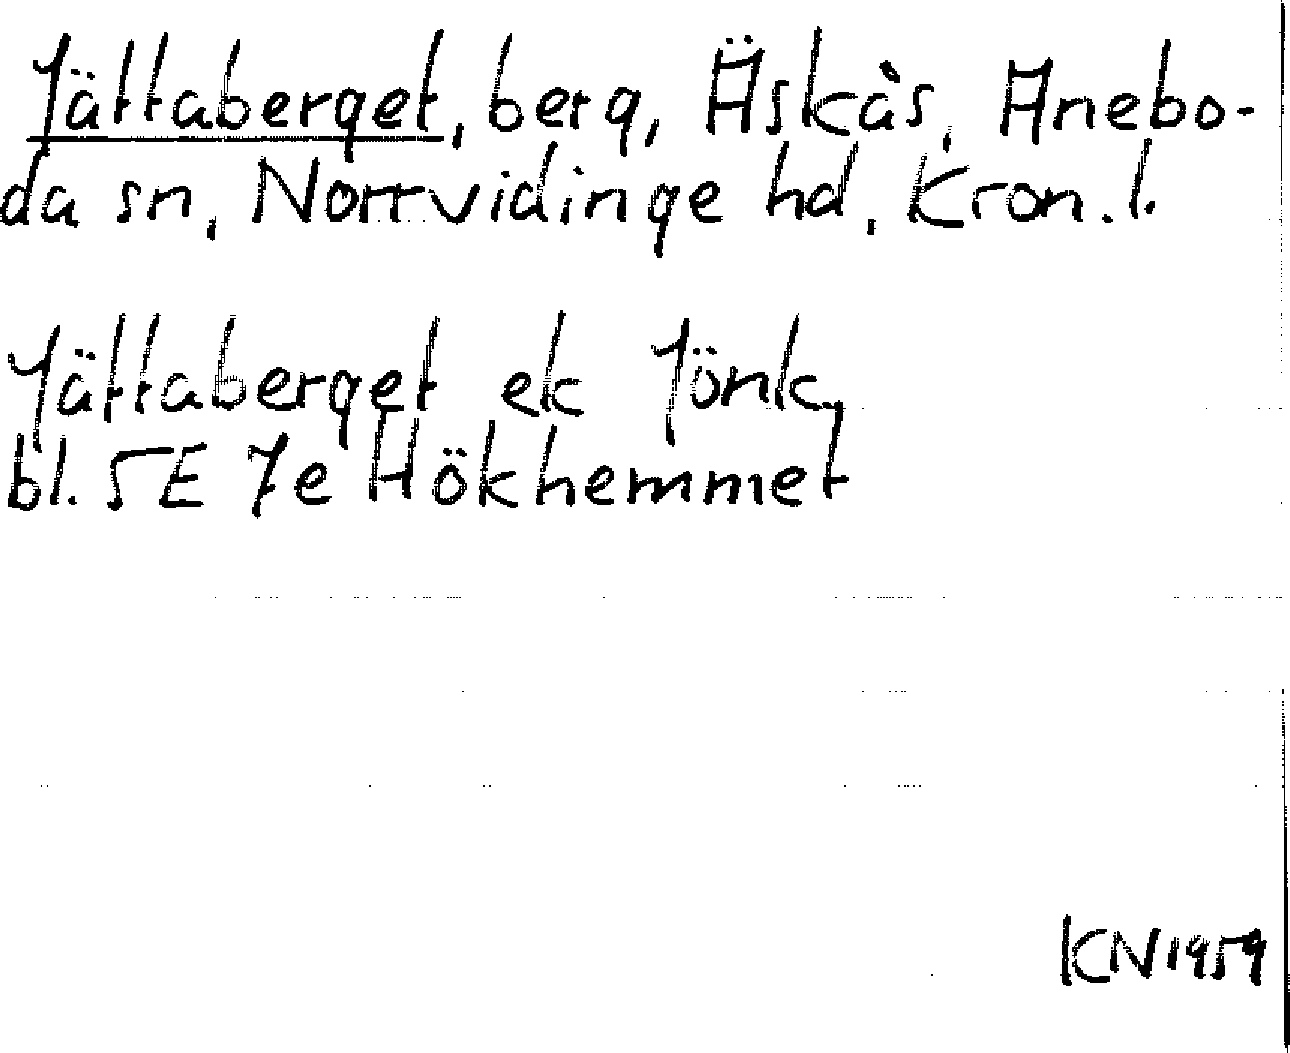 Jättaberget, berg, Äskås, Anebo-
da sn, Norrvidinge hd, Kron. l.
Jättaberget ek Jönk,
bl. 5E 7e Hökhemmet
KN 1959